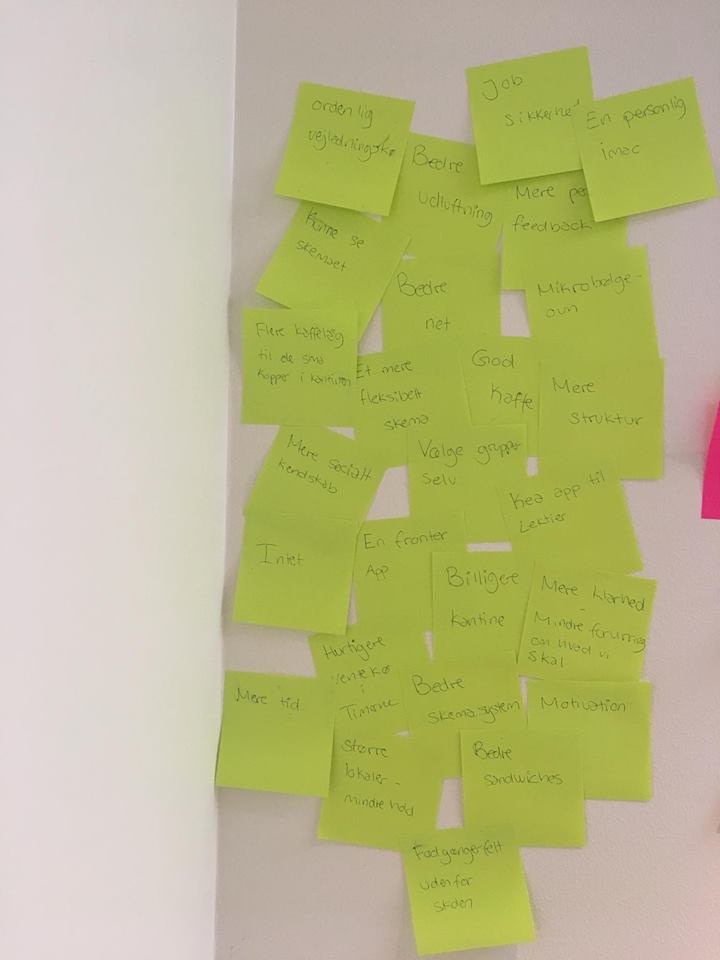 ordenlig
Job
sikkerhed
En personlig
imac
Bedre
udluftning
Mere
feedback
Kunne se
skemaet
Bedre
net
Mikrobølge-
ovn
Flere kaffelåg
til de små
kopper i kantinen
Et mere
fleksibelt
skema
God
kaffe
Mere
struktur
Mere socialt
kendskab
Vælge grupper
selv
Kea app til
Lektier
Intet
En fronter
App
Billigere
kantine
Mere klarhed
-
Mindre forvirring
om hvad vi
skal
Hurtigere
i
Timerne
Mere tid
Bedre
skemasystem
Motivation
Større
lokaler -
mindre hold
Bedre
sandwiches
Fodgængerfelt
udenfor
skolen